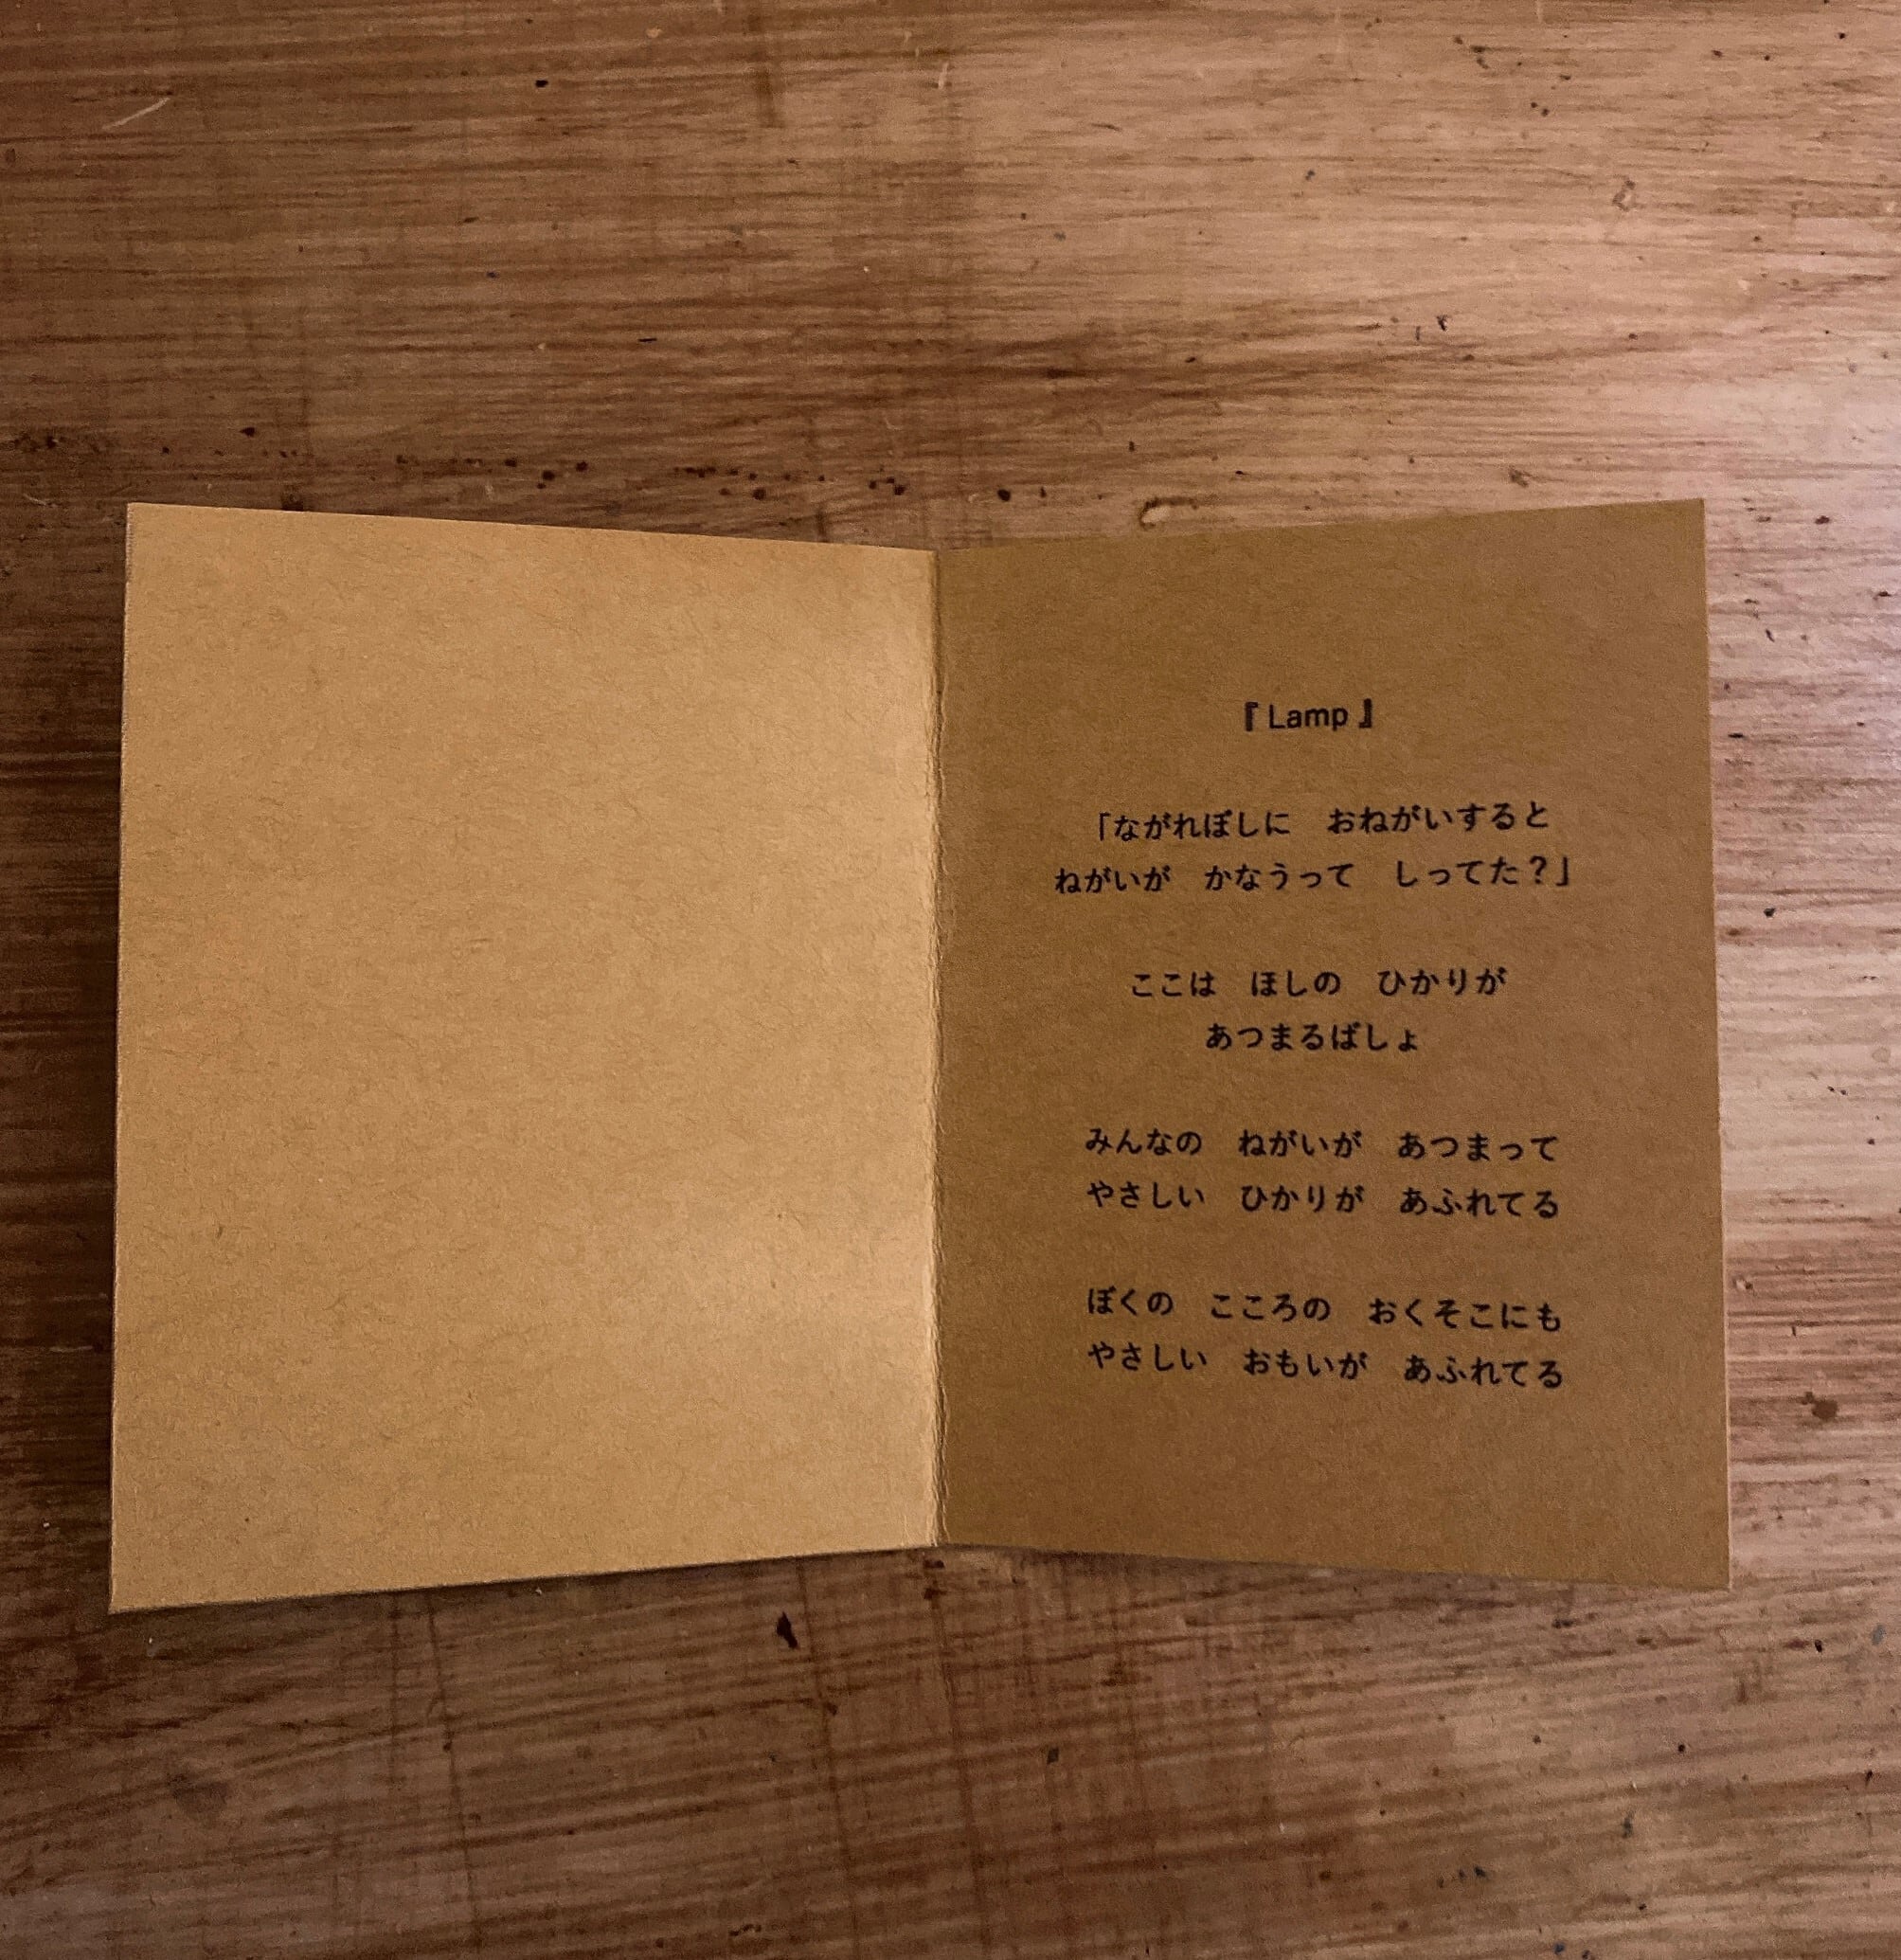 『 Lamp 』
「ながれぼしに　おねがいすると
ねがいが　かなうって　しってた？」
ここは　ほしの　ひかりが
あつまるばしょ
みんなの　ねがいが　あつまって
やさしい　ひかりが　あふれてる
ぼくの　こころの　おくそこにも
やさしい　おもいが　あふれてる